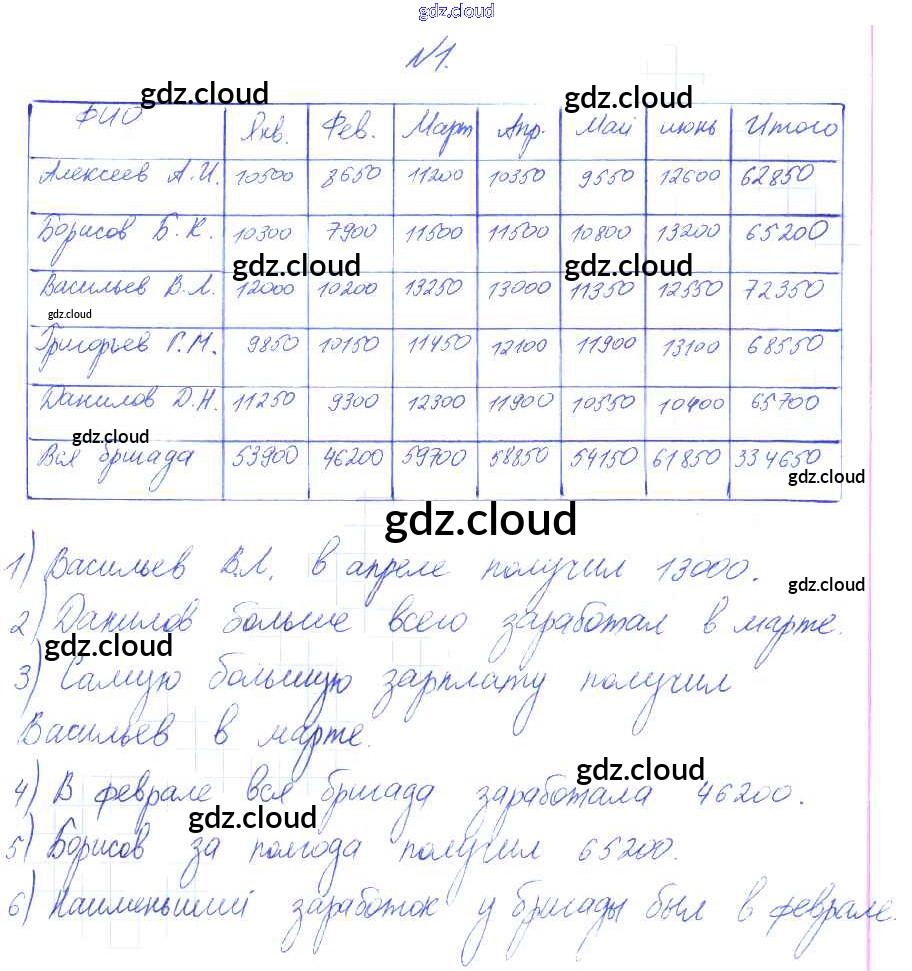 gdz.cloud
N1.
gdz.cloud gdz.cloud
ФИО Янв. Фев. Март Апр. Май июнь Итого
Алексеев А.И. 10500 8650 11200 10350 9550 12600 62850
Борисов Б.К. 10300 7900 11500 11500 10800 13200 65200
gdz.cloud gdz.cloud
Васильев В.Л. 12000 10200 13250 13000 11350 12550 72350
gdz.cloud
Григорьев Г.М. 9850 10150 11450 12100 11900 13100 68550
Данилов Д.Н. 11250 9300 12300 11900 10550 10400 65700
gdz.cloud
Вся бригада 53900 46200 59700 58850 54150 61850 334650
gdz.cloud
gdz.cloud
1) Васильев В.Л. в апреле получил 13000.
gdz.cloud
2) Данилов больше всего заработал в марте.
gdz.cloud
3) Самую большую зарплату получил
Васильев в марте.
gdz.cloud
4) В феврале вся бригада заработала 46200.
gdz.cloud
5) Борисов за полгода получил 65200.
6) Наименьший заработок у бригады был в феврале.